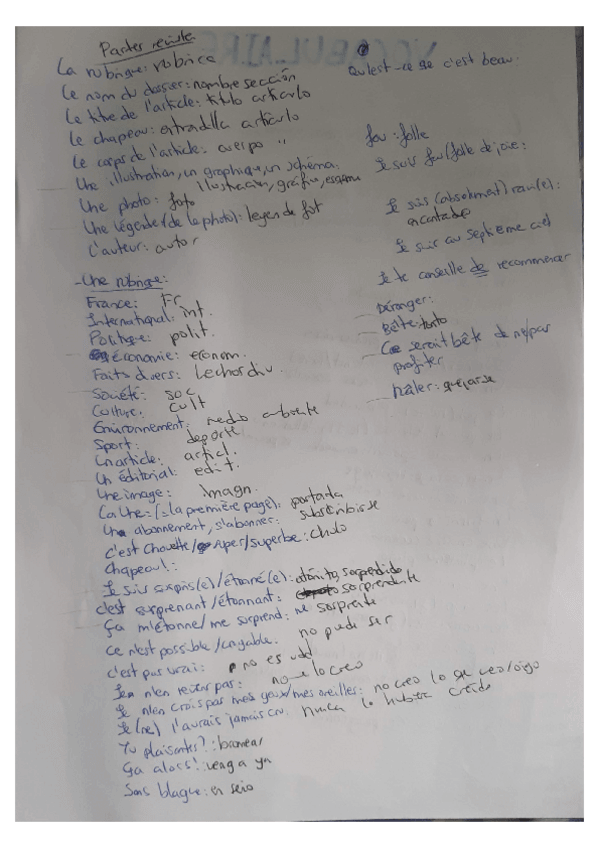 Partes revista
La rubrique: rubrica
Le nom du dossier: nombre sección
Le titre de l'article: titulo articulo
Le chapeau: entradilla artículo
Le corps de l'article: cuerpo "
Une illustration, un graphique, un schéma:
Ilustración, gráfico, esquema
Une photo: foto
Une légende (de la photo): leyenda fot
L'auteur: autor
-Une rubrique:
France: Fr
International: int.
Politique: polit.
économie: econom.
Faits divers:
Société: soc
Culture: cult
Environnement: medio ambiente
Sport: deporte
Un article: articl.
Un éditorial: edit.
Une image: Imagn.
La Une: (=la première page): portada
Un abonnement, s'abonner: subscribirse
c'est Chouette/ /superbe: chulo
Chapeau!:
Je suis surpris(e)/étonné(e): atónito, sorprendido
c'est surprenant/étonnant: sorprendente
Ça m'étonne/me surprend: me sorprende
Ce n'est possible/croyable: no puede ser
c'est pas vrai: no es vdd
J'en reviens pas: no me lo creo
Je n'en crois pas mes yeux/mes oreilles: no creo lo que veo/oigo
Je (ne) l'aurais jamais cru: nunca lo hubiera creido
Tu plaisantes?: bromear
Ça alors!: venga ya
Sans blague: en serio
Qu'est-ce que c'est beau:
fou: folle
Je suis fou/folle de joie:
Je suis (absolument) ravi(e):
encantado
Je suis au septième ciel
Je te conseille de recommencer
Déranger:
- Bête: tonto
- Ce serait bête de ne/pas
profiter
râler: quejarse